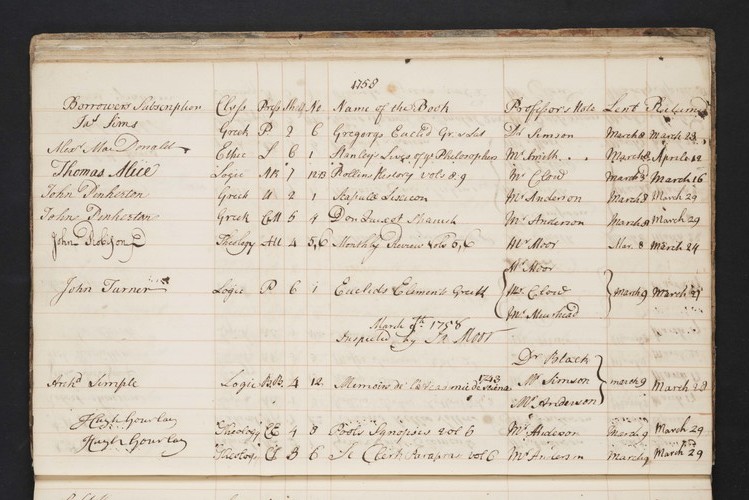 1758
Borrowers Subscription Class Press Sh. No. Name of the Book Professors Note Lent Returned
Jas. Sims Greek P 2 6 Gregorys Euclid Gr. & Lat Dr Simson March 8 March 23
Alexr. MacDonald Ethic L 6 1 Stanley's Lives of ye Philosophers Mr March 8 April 12
Thomas Alice Logic 7 Rollins History vols 8, 9 Mr Clow March 8 March 16
John Penkerton Greek U 2 1 Scapula Lexicon Mr Anderson March 8 March 29
John Penkerton Greek 5 4 Don Spanish Mr Anderson March 8 March 29
John Robison Theology All 4 5,6 Monthly Review Vols 5, 6 Mr Moor Mar. 8 March 24
Mr Moor
John Turner Logic P 6 1 Euclids Elements Greek Mr Clow March 9 March 21
Mr Muirhead
March 9th 1758
Inspected by Ja Moor
Dr Black
1743
Archd Simple Logic 4 12. Memoirs de Mr Simson March 9 March 28
Mr Anderson
Hugh Gourlay Theology CE 4 8 Pool's Synopsis vol 6 Mr Anderson March 9 March 29
Hugh Gourlay Theology 3 6 Clark Paraphrase vol 6 Mr Anderson March 9 March 29